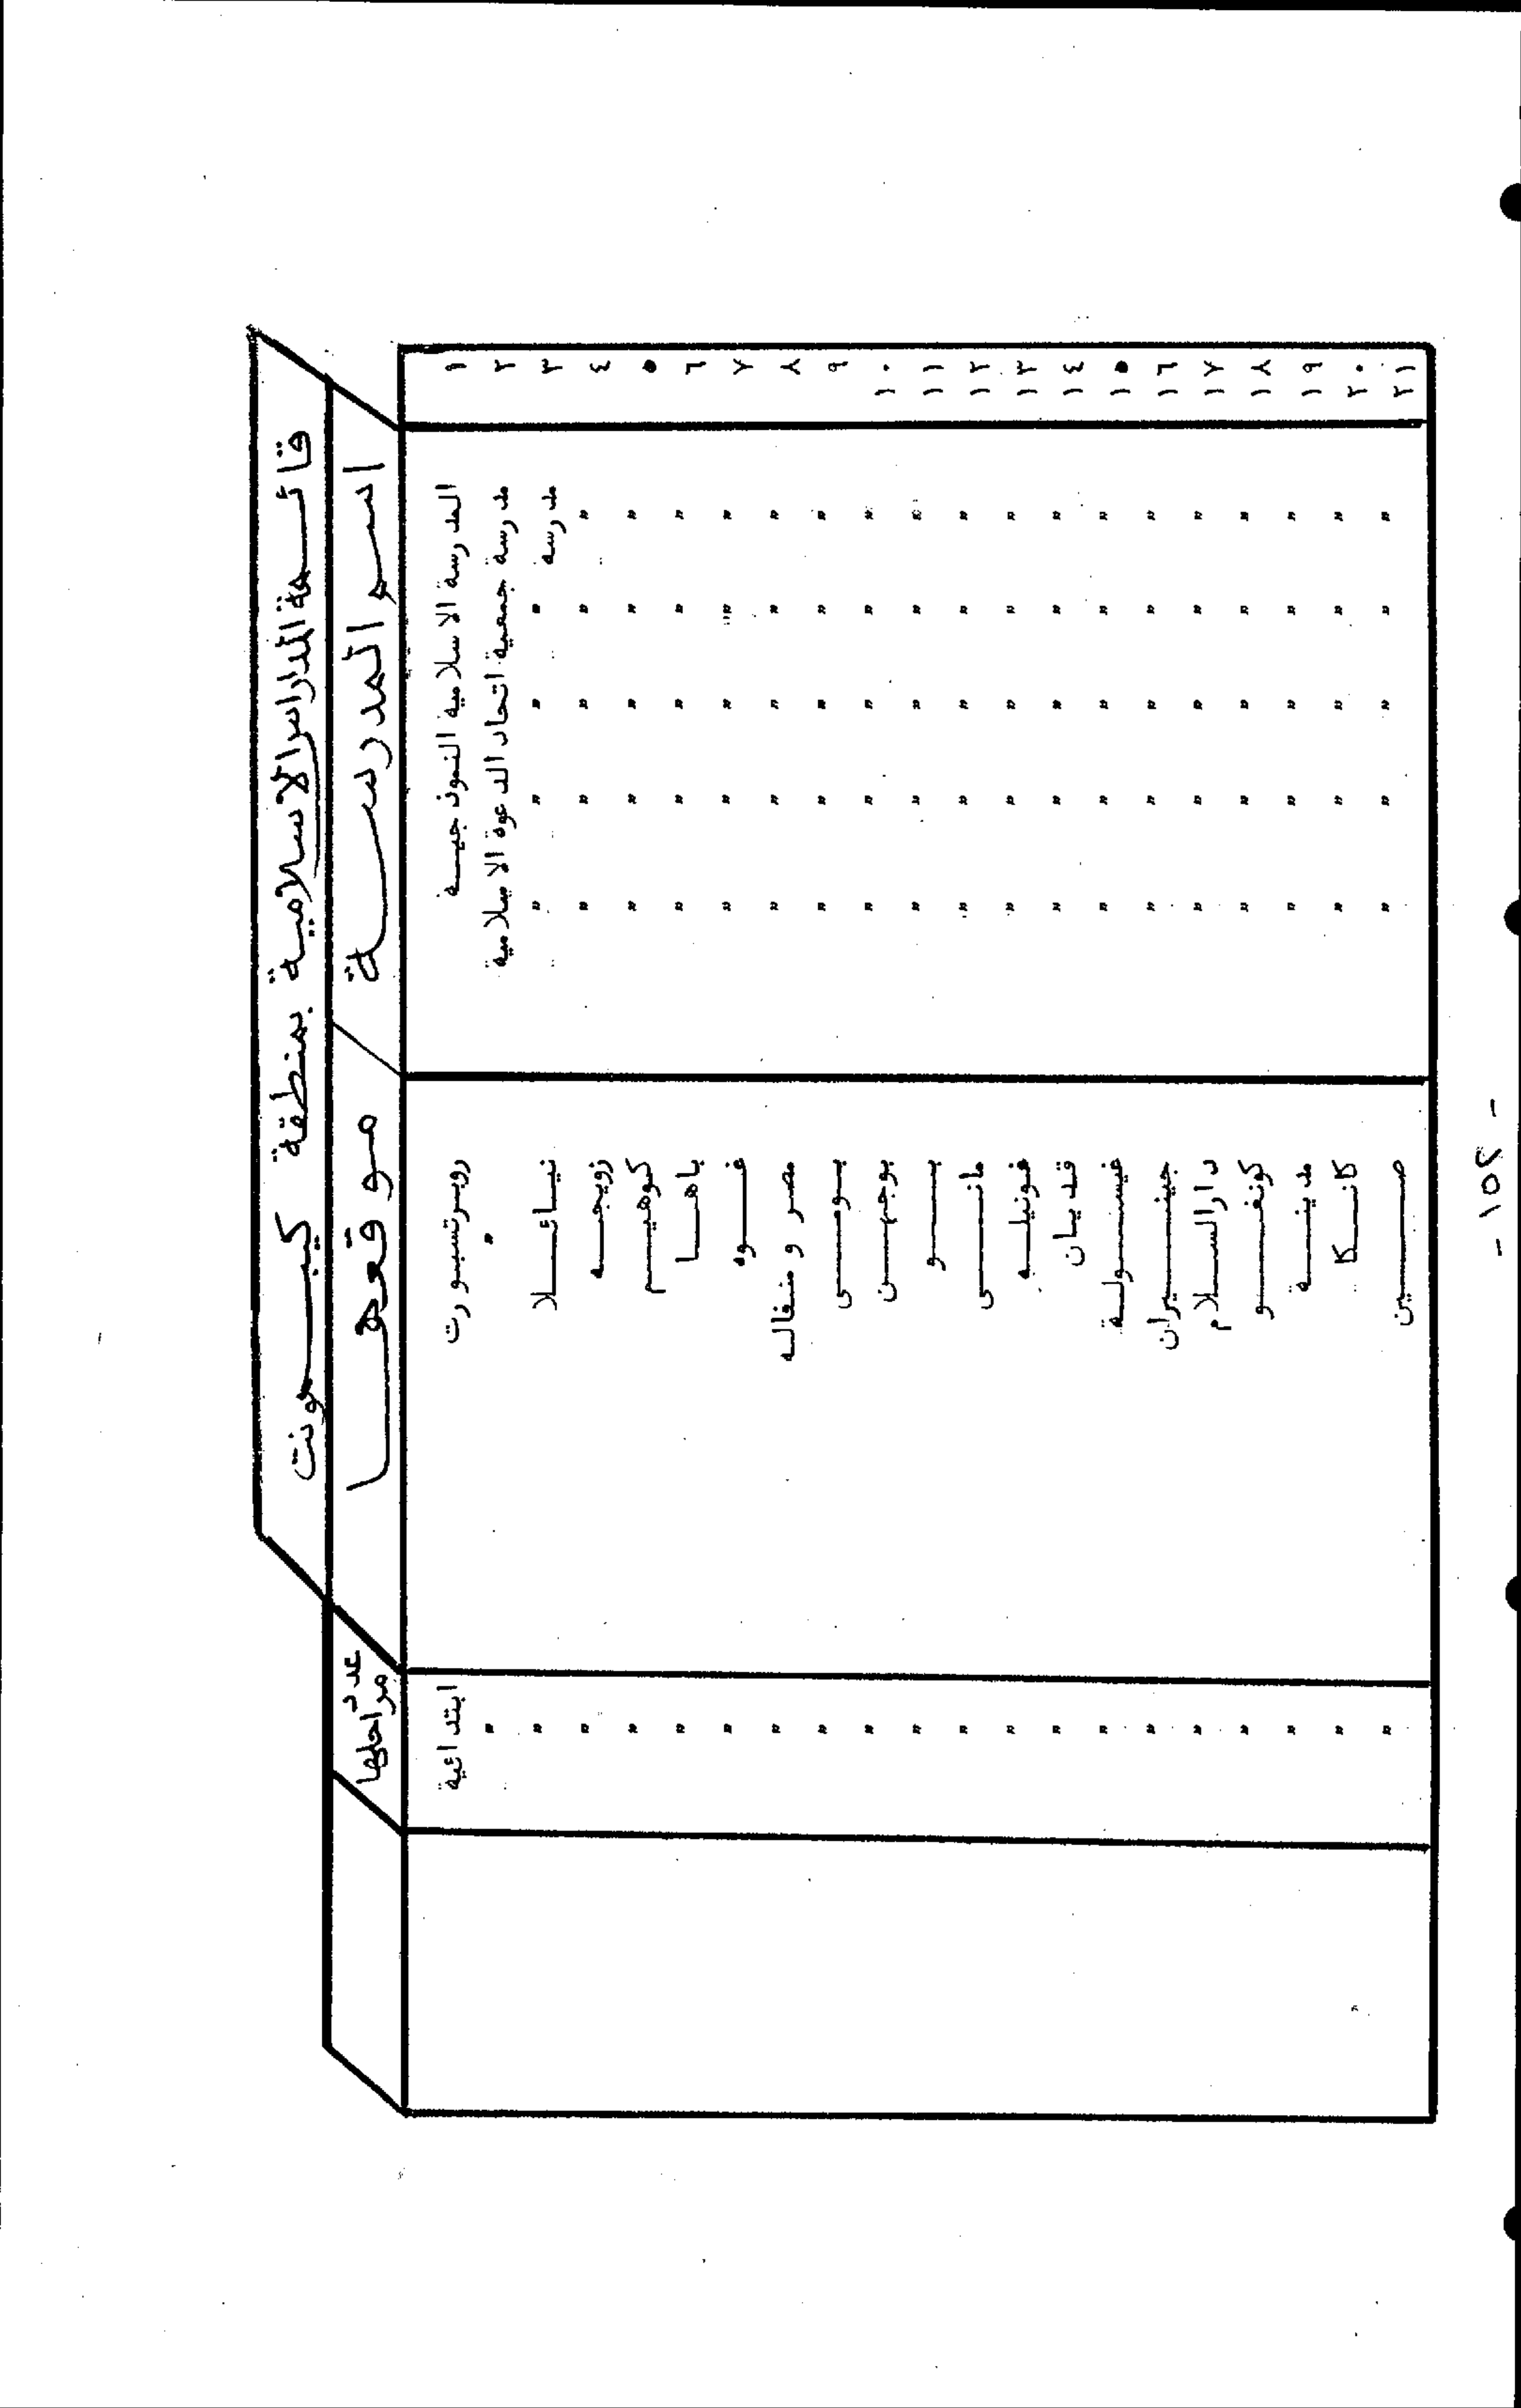 قائمة المدارس الاسلامية بمنطقة كيب مونت
اسم المدرسة / موقعها عدد مراحلها
١ المدرسة الاسلامية النموذجية روبرتسبورت ابتدائية
٢ مدرسة جمعية اتحاد الدعوة الاسلامية " "
٣ مدرسة " " " " نيائلا "
٤ " " " " " زويجه "
٥ " " " " " كوهيم "
٦ " " " " " باها "
٧ " " " " " غوه "
٨ " " " " " مصر ومنغاله "
٩ " " " " " بومى "
١٠ " " " " " بوجهن "
١١ " " " " " بو "
١٢ " " " " " مانى "
١٣ " " " " " فونيله "
١٤ " " " " " قديان "
١٥ " " " " " غيسولة "
١٦ " " " " " جينيران "
١٧ " " " " " دار السلام "
١٨ " " " " " كونغو "
١٩ " " " " " مدينة "
٢٠ " " " " " كانكا "
٢١ " " " " " صين "
- ١٥٢ -